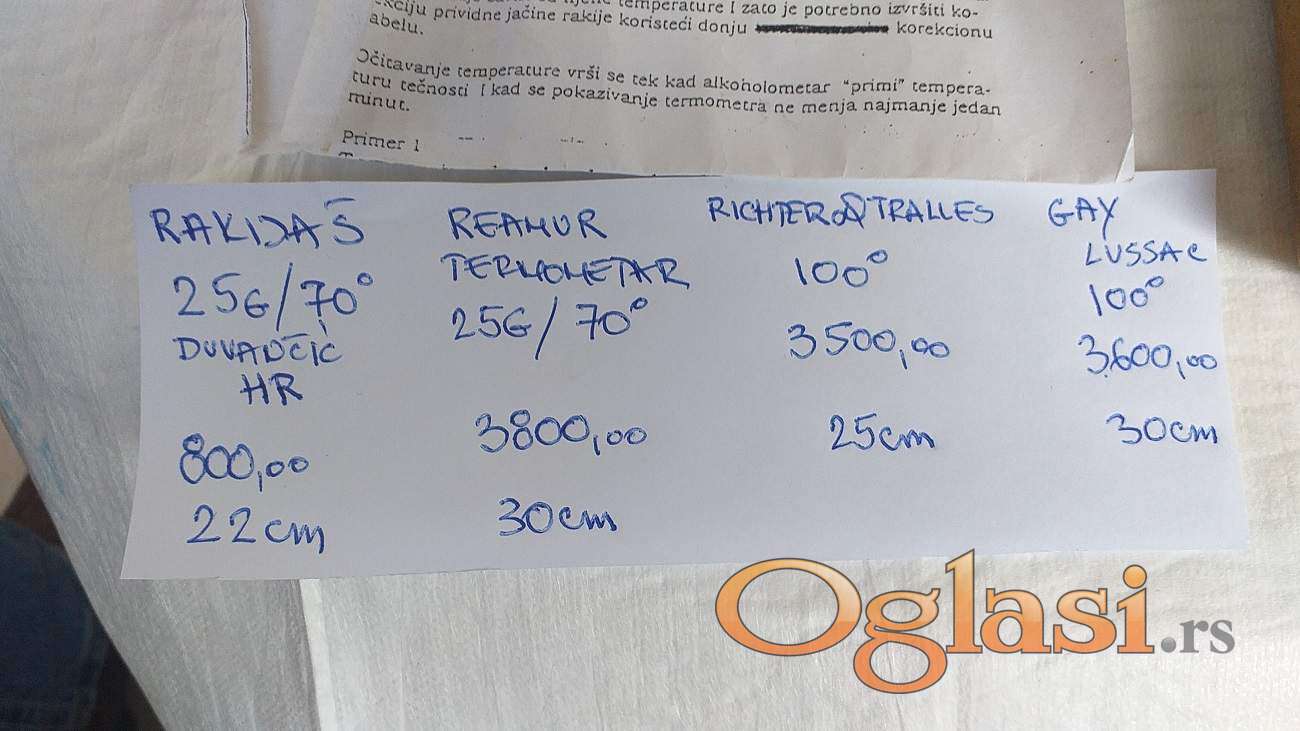 temperature I zato je potrebno izvršiti ko-
kciju prividne jačine rakije koristeći donju korekcionu
abelu.
Očitavanje temperature vrši se tek kad alkoholometar "primi" tempera-
turu tečnosti I kad se pokazivanje termometra ne menja najmanje jedan
minut.
Primer 1
RAKIJAŠ
25G/70°
DUVANČIĆ
HR
800,00
22cm
REAMUR
TERMOMETAR
25G/70°
3800,00
30cm
RICHTER & TRALLES
100°
3500,00
25cm
GAY
LUSSAC
100°
3.600,00
30cm
Oglasi.rs